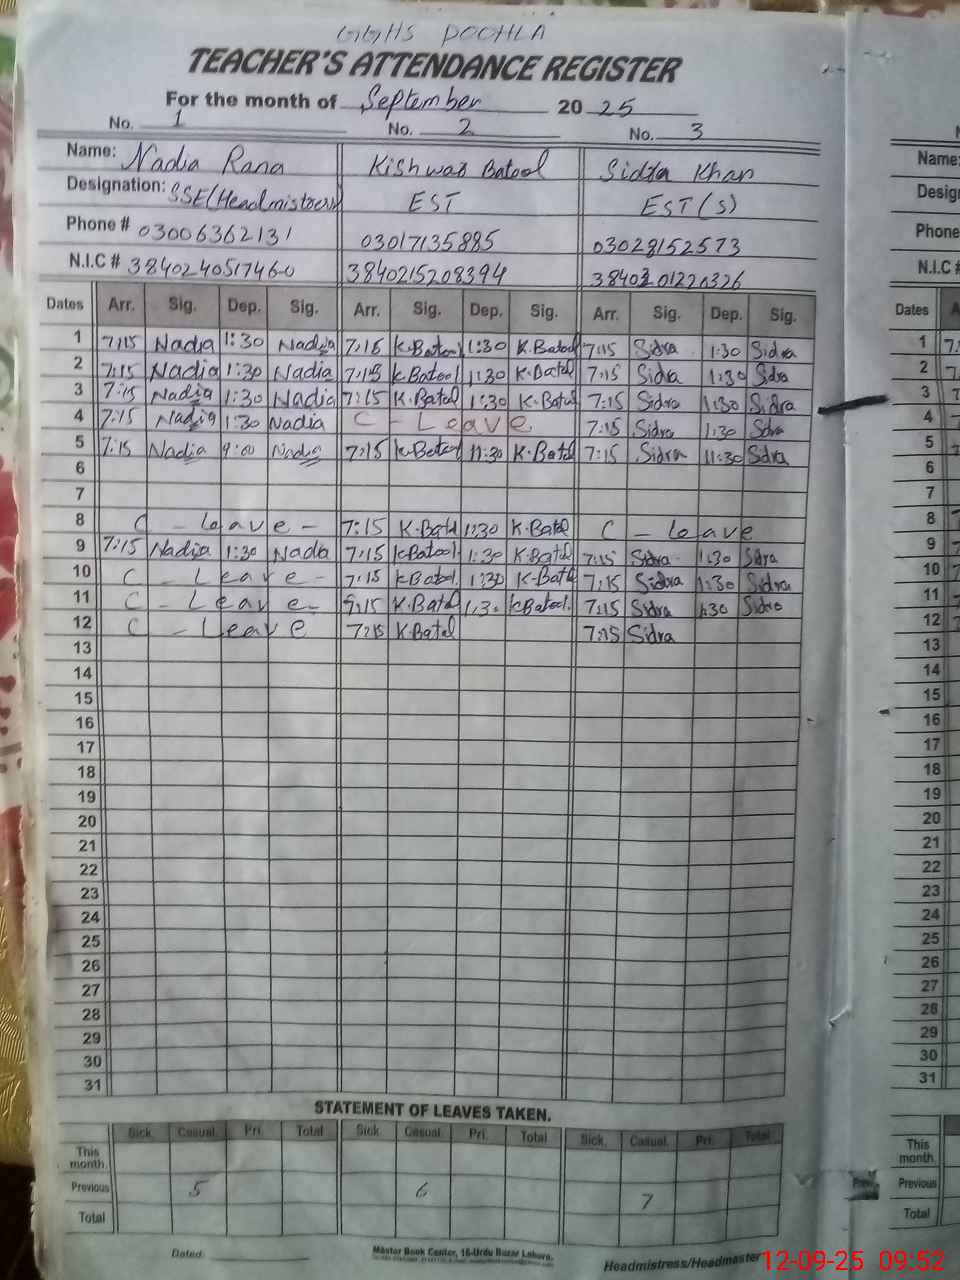 GGHS DOCHLA
TEACHER'S ATTENDANCE REGISTER
For the month of September 20 25
No. 1 No. 2 No. 3
Name: Nadia Rana Kishwar Batool Sidra Khan
Designation: SSE(Headmistress) EST EST(S)
Phone # 03006362131 03017135885 03028152573
N.I.C # 3840240517460 3840215208394 3840201220326
Dates Arr. Sig. Dep. Sig. Arr. Sig. Dep. Sig. Arr. Sig. Dep. Sig.
1 7:15 Nadia 1:30 Nadia 7:15 K.Batool 1:30 K.Batool 7:15 Sidra 1:30 Sidra
2 7:15 Nadia 1:30 Nadia 7:15 K.Batool 1:30 K.Batol 7:15 Sidra 1:30 Sidra
3 7:15 Nadia 1:30 Nadia 7:15 K.Batol 1:30 K.Batol 7:15 Sidra 1:30 Sidra
4 7:15 Nadia 1:30 Nadia C - Leave 7:15 Sidra 1:30 Sidra
5 7:15 Nadia 9:00 Nadia 7:15 K.Batol 11:30 K.Batol 7:15 Sidra 11:30 Sidra
6
7
8 C - Leave - 7:15 K.Batol 1:30 K.Batol C - Leave
9 7:15 Nadia 1:30 Nadia 7:15 K.Batool 1:30 K.Batol 7:15 Sidra 1:30 Sidra
10 C - Leave - 7:15 K.Batol 1:30 K.Batol 7:15 Sidra 1:30 Sidra
11 C - Leave - 7:15 K.Batol 1:30 K.Batool 7:15 Sidra 1:30 Sidra
12 C - Leave 7:15 K.Batol 7:15 Sidra
13
14
15
16
17
18
19
20
21
22
23
24
25
26
27
28
29
30
31
STATEMENT OF LEAVES TAKEN.
Sick. Casual. Pri. Total Sick. Casual. Pri. Total Sick. Casual. Pri. Total
This month.
Previous 5 6 7
Total
Dated:
Master Book Center, 16-Urdu Bazar Lahore.
Headmistress/Headmaster
Name:
Phone
N.I.C #
Dates
1
2
3
4
5
6
7
8
9
10
11
12
13
14
15
16
17
18
19
20
21
22
23
24
25
26
27
28
29
30
31
This month.
Previous
Total
12-09-25 09:52